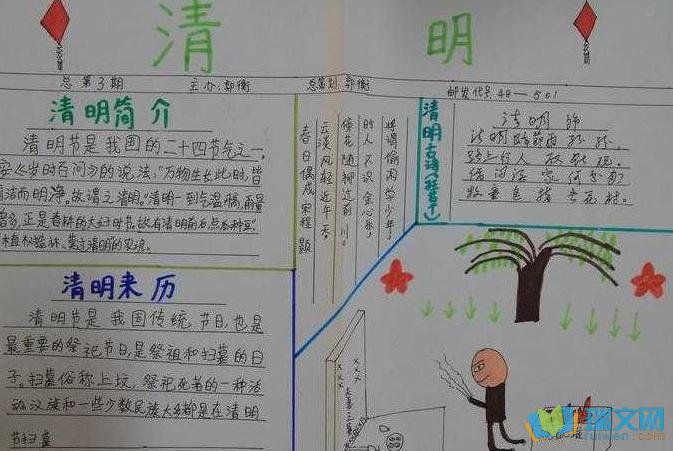 清 明
总 第3期 主办:郭衡 总策划:郭衡 邮发代号:48—501
清明简介
清明节是我国的二十四节气之一,
安《岁时百问》的说法,"万物生长此时,皆
清洁而明净。故谓之清明。"清明一到气温
增多,正是春耕的大好时节。故有清明前后,点瓜种豆"
清明来历
清明节是我国传统节日,也是
最重要的祭祀节日,是祭祖和扫墓的日
子。扫墓俗称上坟,祭祀死者的一种活
动汉族和一些少数民族大多都是在清明
节扫墓
春日偶成 宋程颢
云淡风轻近午天,
傍花随柳过前川。
时人不识余心乐,
将谓偷闲学少年。
清明古诗
清明节
清明时节雨纷纷,
路上行人欲断魂。
牧童遥指杏花村。
XXX
XXX
瑞文网
ruiwen.com